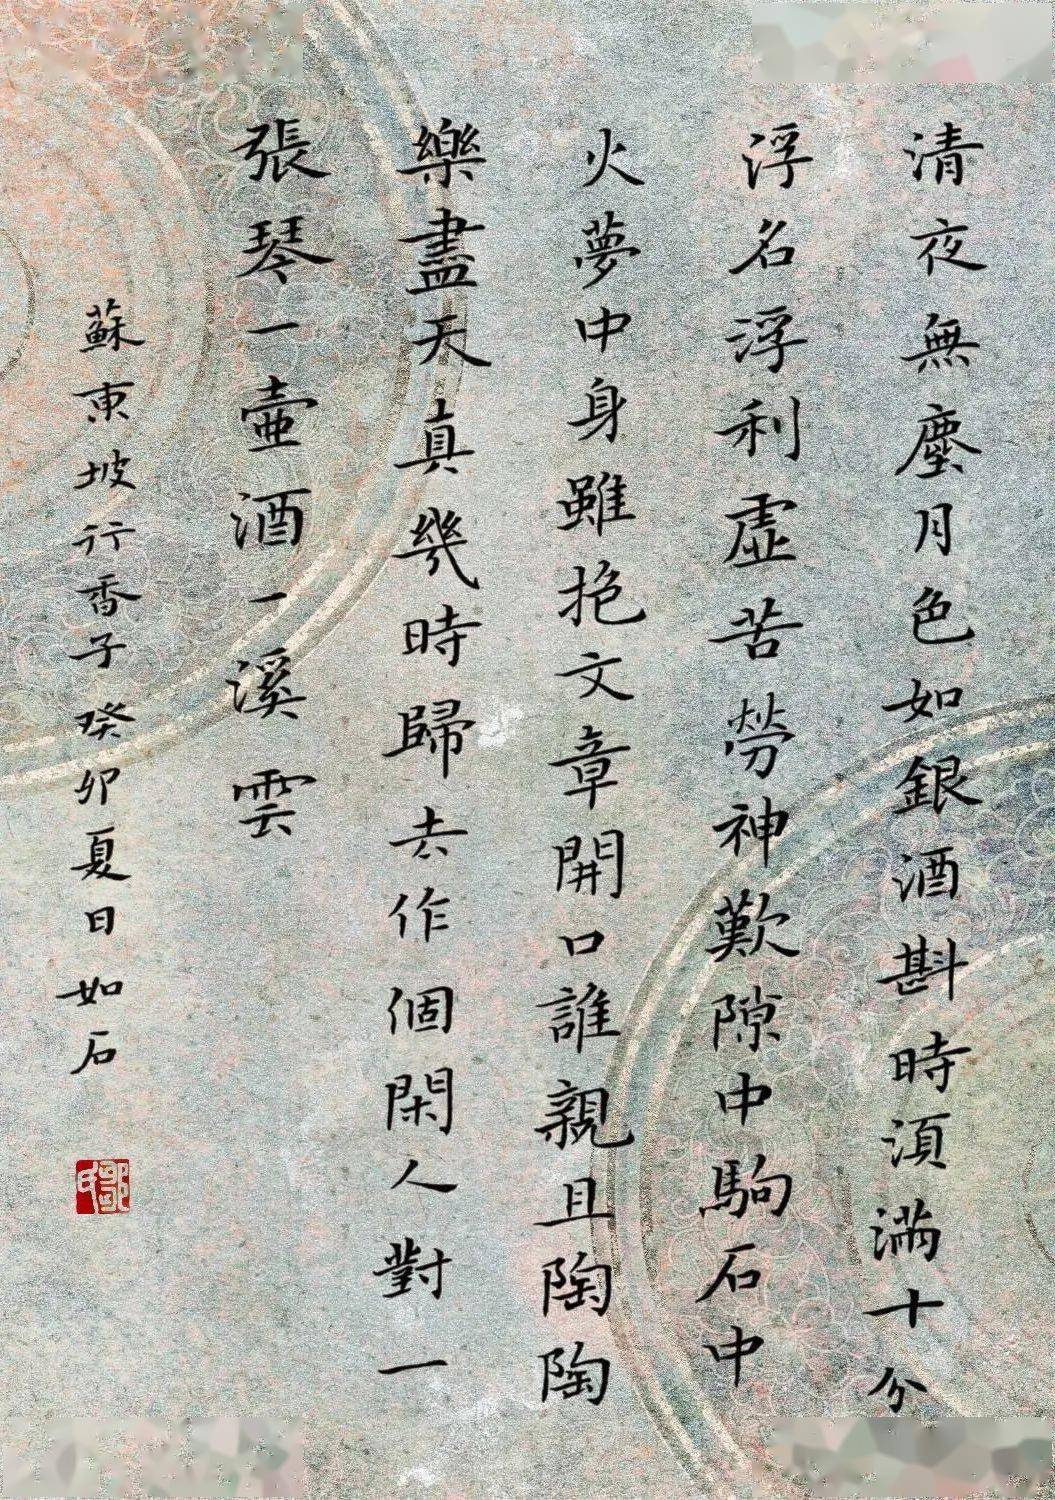 清夜無塵月色如銀酒斟時湏滿十分
浮名浮利虛苦勞神歎隙中駒石中
火夢中身雖抱文章開口誰親且陶陶
樂盡天真幾時歸去作個閑人對一
張琴一壺酒一溪雲
蘇東坡行香子癸卯夏日如石
鄒氏